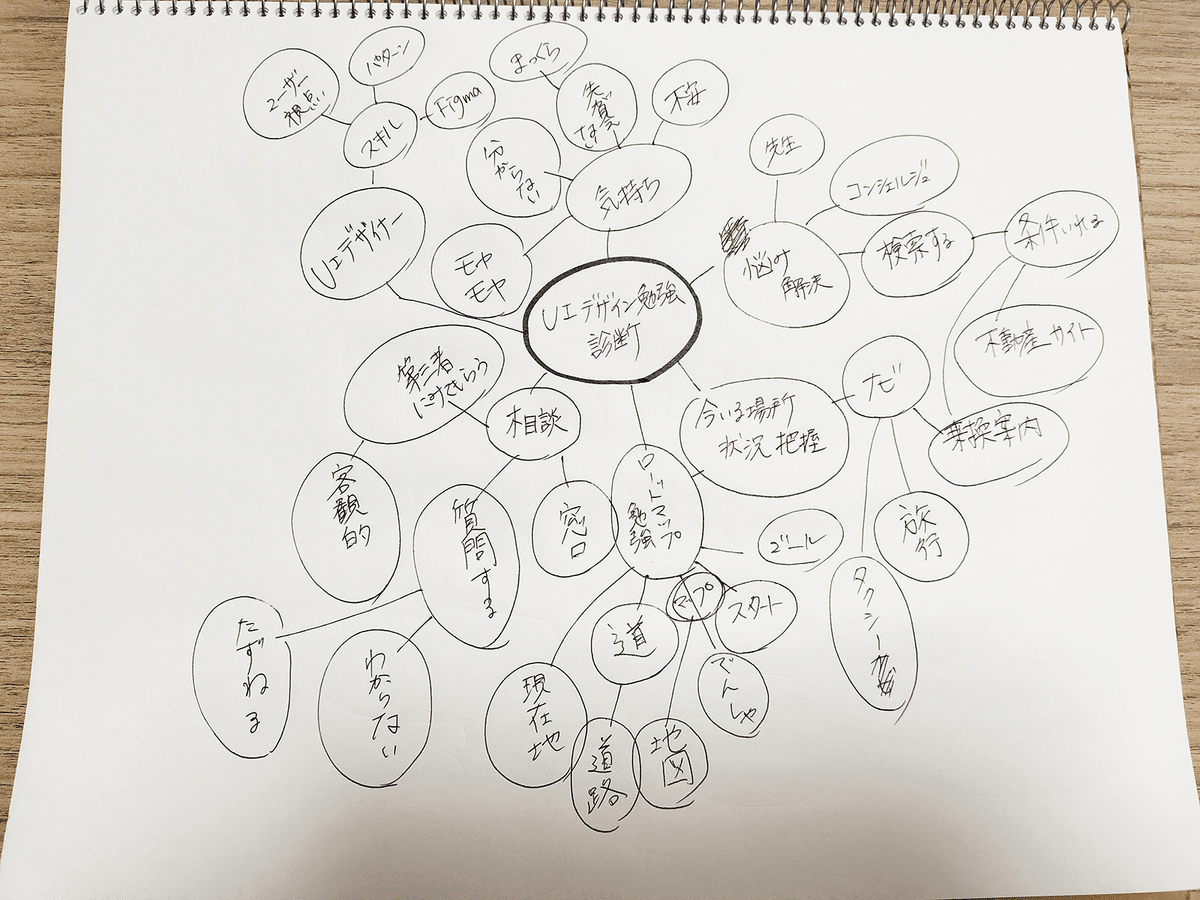 ユーザー
視点
パターン
スキル
Figma
UIデザイナー
まっくら
先が見え
ない
不安
分からない
気持ち
モヤ
モヤ
UIデザイン勉強
診断
悩み
解決
先生
コンシェルジュ
検索する
条件いれる
不動産サイト
乗換案内
今いる場所
状況把握
ナビ
旅行
タクシー
ロードマップ
勉強
ゴール
スタート
マップ
でんしゃ
地図
道
道路
現在地
相談
第三者
にみてもらう
客観的
質問する
窓口
たずねる
わからない